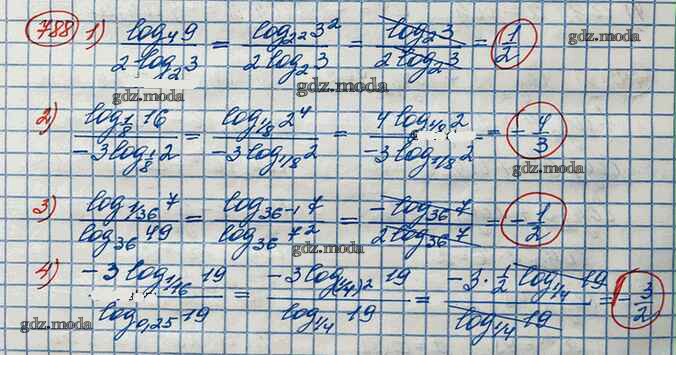 788 1) log₄9 / 2 log₂3 = log₂² 3² / 2 log₂3 = log₂3 / 2 log₂3 = 1/2
gdz.moda
gdz.moda
gdz.moda
2) log_1/8 16 / -3 log_1/8 2 = log_1/8 2⁴ / -3 log_1/8 2 = 4 log_1/8 2 / -3 log_1/8 2 = -4/3
gdz.moda
gdz.moda
gdz.moda
3) log_1/36 7 / log₃₆ 49 = log_36⁻¹ 7 / log₃₆ 7² = -log₃₆ 7 / 2 log₃₆ 7 = -1/2
gdz.moda
gdz.moda
gdz.moda
4) -3 log_1/16 19 / log_0,25 19 = -3 log_(1/4)² 19 / log_1/4 19 = -3 · 1/2 log_1/4 19 / log_1/4 19 = -3/2
gdz.moda
gdz.moda